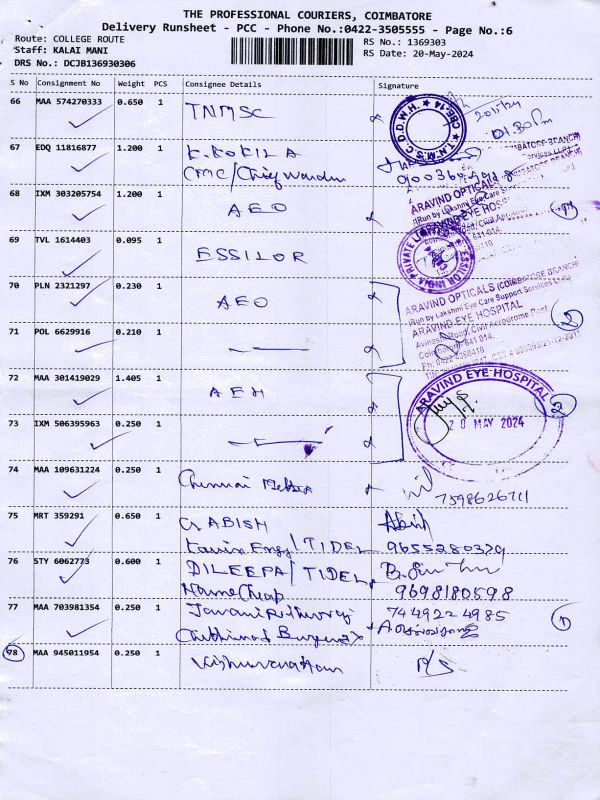 THE PROFESSIONAL COURIERS, COIMBATORE
Delivery Runsheet - PCC - Phone No.:0422-3505555 - Page No.:6
Route: COLLEGE ROUTE
Staff: KALAI MANI
DRS No.: DCJB136930306
RS No.: 1369303
RS Date: 20-May-2024
S No Consignment No Weight PCS Consignee Details Signature
66 MAA 574270333 0.650 1 TNMSC
T.N.M.S.C. D.D.W.H. CBE-14
01.30 Pm
67 EDQ 11816877 1.200 1 K. KOKILA
CMC/Chief Warden
68 IXM 303205754 1.200 1 AEO
ARAVIND OPTICALS
ARAVIND EYE HOSPITAL
69 TVL 1614403 0.095 1 ESSILOR
ESSILOR INDIA PRIVATE
70 PLN 2321297 0.230 1 AEO
ARAVIND OPTICALS (COIMBATORE BRANCH)
(Run by Lakshmi Eye Care Support Services
ARAVIND EYE HOSPITAL
Avinashi Road, Civil Aerodrome Post
Coimbatore 641 014.
71 POL 6629916 0.210 1
2
72 MAA 301419029 1.405 1 AEH
ARAVIND EYE HOSPITAL
20 MAY 2024
2
73 IXM 506395963 0.250 1
74 MAA 109631224 0.250 1 Chennai
7598626711
75 MRT 359291 0.650 1 G. ABISH
/TIDEL
Abish
9655280379
76 STY 6062773 0.600 1 DILEEPA/TIDEL
NameCheap
9698180598
77 MAA 703981354 0.250 1
7449224985
1
78 MAA 945011954 0.250 1